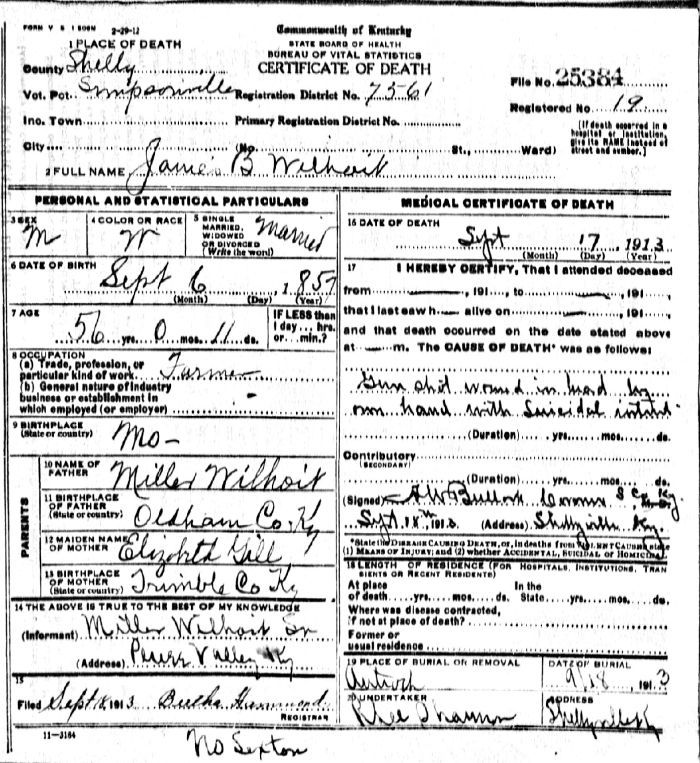 FORM V S 1 2-29-12
Commonwealth of Kentucky
STATE BOARD OF HEALTH
BUREAU OF VITAL STATISTICS
CERTIFICATE OF DEATH
1 PLACE OF DEATH
County Shelby
Vot. Pct. Simpsonville Registration District No. 7561
File No. 25384
Registered No. 19
Inc. Town Primary Registration District No.
City (No. St., Ward)
[If death occurred in a hospital or institution, give its NAME instead of street and number.]
2 FULL NAME James B Wilhoit
PERSONAL AND STATISTICAL PARTICULARS
3 SEX M
4 COLOR OR RACE W
5 SINGLE, MARRIED, WIDOWED OR DIVORCED (Write the word) Married
6 DATE OF BIRTH Sept 6, 1857
(Month) (Day) (Year)
7 AGE
56 yrs. 0 mos. 11 ds.
IF LESS than 1 day... hrs. or... min.?
8 OCCUPATION
(a) Trade, profession, or particular kind of work Farmer
(b) General nature of industry business or establishment in which employed (or employer) -
9 BIRTHPLACE (State or country) Mo-
PARENTS
10 NAME OF FATHER Miller Wilhoit
11 BIRTHPLACE OF FATHER (State or country) Oldham Co. Ky
12 MAIDEN NAME OF MOTHER Elizabeth Gill
13 BIRTHPLACE OF MOTHER (State or country) Trimble Co Ky
14 THE ABOVE IS TRUE TO THE BEST OF MY KNOWLEDGE
(Informant) Miller Wilhoit Sr
(Address) Pewee Valley Ky
15
Filed Sept 18, 1913 Hammond
REGISTRAR
11-3184
No Sexton
MEDICAL CERTIFICATE OF DEATH
16 DATE OF DEATH
Sept 17, 1913
(Month) (Day) (Year)
17 I HEREBY CERTIFY, That I attended deceased
from , 191 , to , 191 ,
that I last saw h alive on , 191 ,
and that death occurred on the date stated above
at m. The CAUSE OF DEATH* was as follows:
Gun shot wound in head by
own hand with Suicidal intent
(Duration) yrs. mos. ds.
Contributory (SECONDARY)
(Duration) yrs. mos. ds.
(Signed) Bullock Coroner S Co. Ky. M.D.
Sept 18th 1913 (Address) Shelbyville Ky.
*State the DISEASE CAUSING DEATH, or, in deaths from VIOLENT CAUSES, state
(1) MEANS OF INJURY; and (2) whether ACCIDENTAL, SUICIDAL or HOMICIDAL
18 LENGTH OF RESIDENCE (FOR HOSPITALS, INSTITUTIONS, TRANSIENTS OR RECENT RESIDENTS)
At place of death yrs. mos. ds. In the State yrs. mos. ds.
Where was disease contracted, if not at place of death?
Former or usual residence
19 PLACE OF BURIAL OR REMOVAL Antioch
DATE OF BURIAL 9/18, 1913
20 UNDERTAKER Shannon
ADDRESS Shelbyville Ky